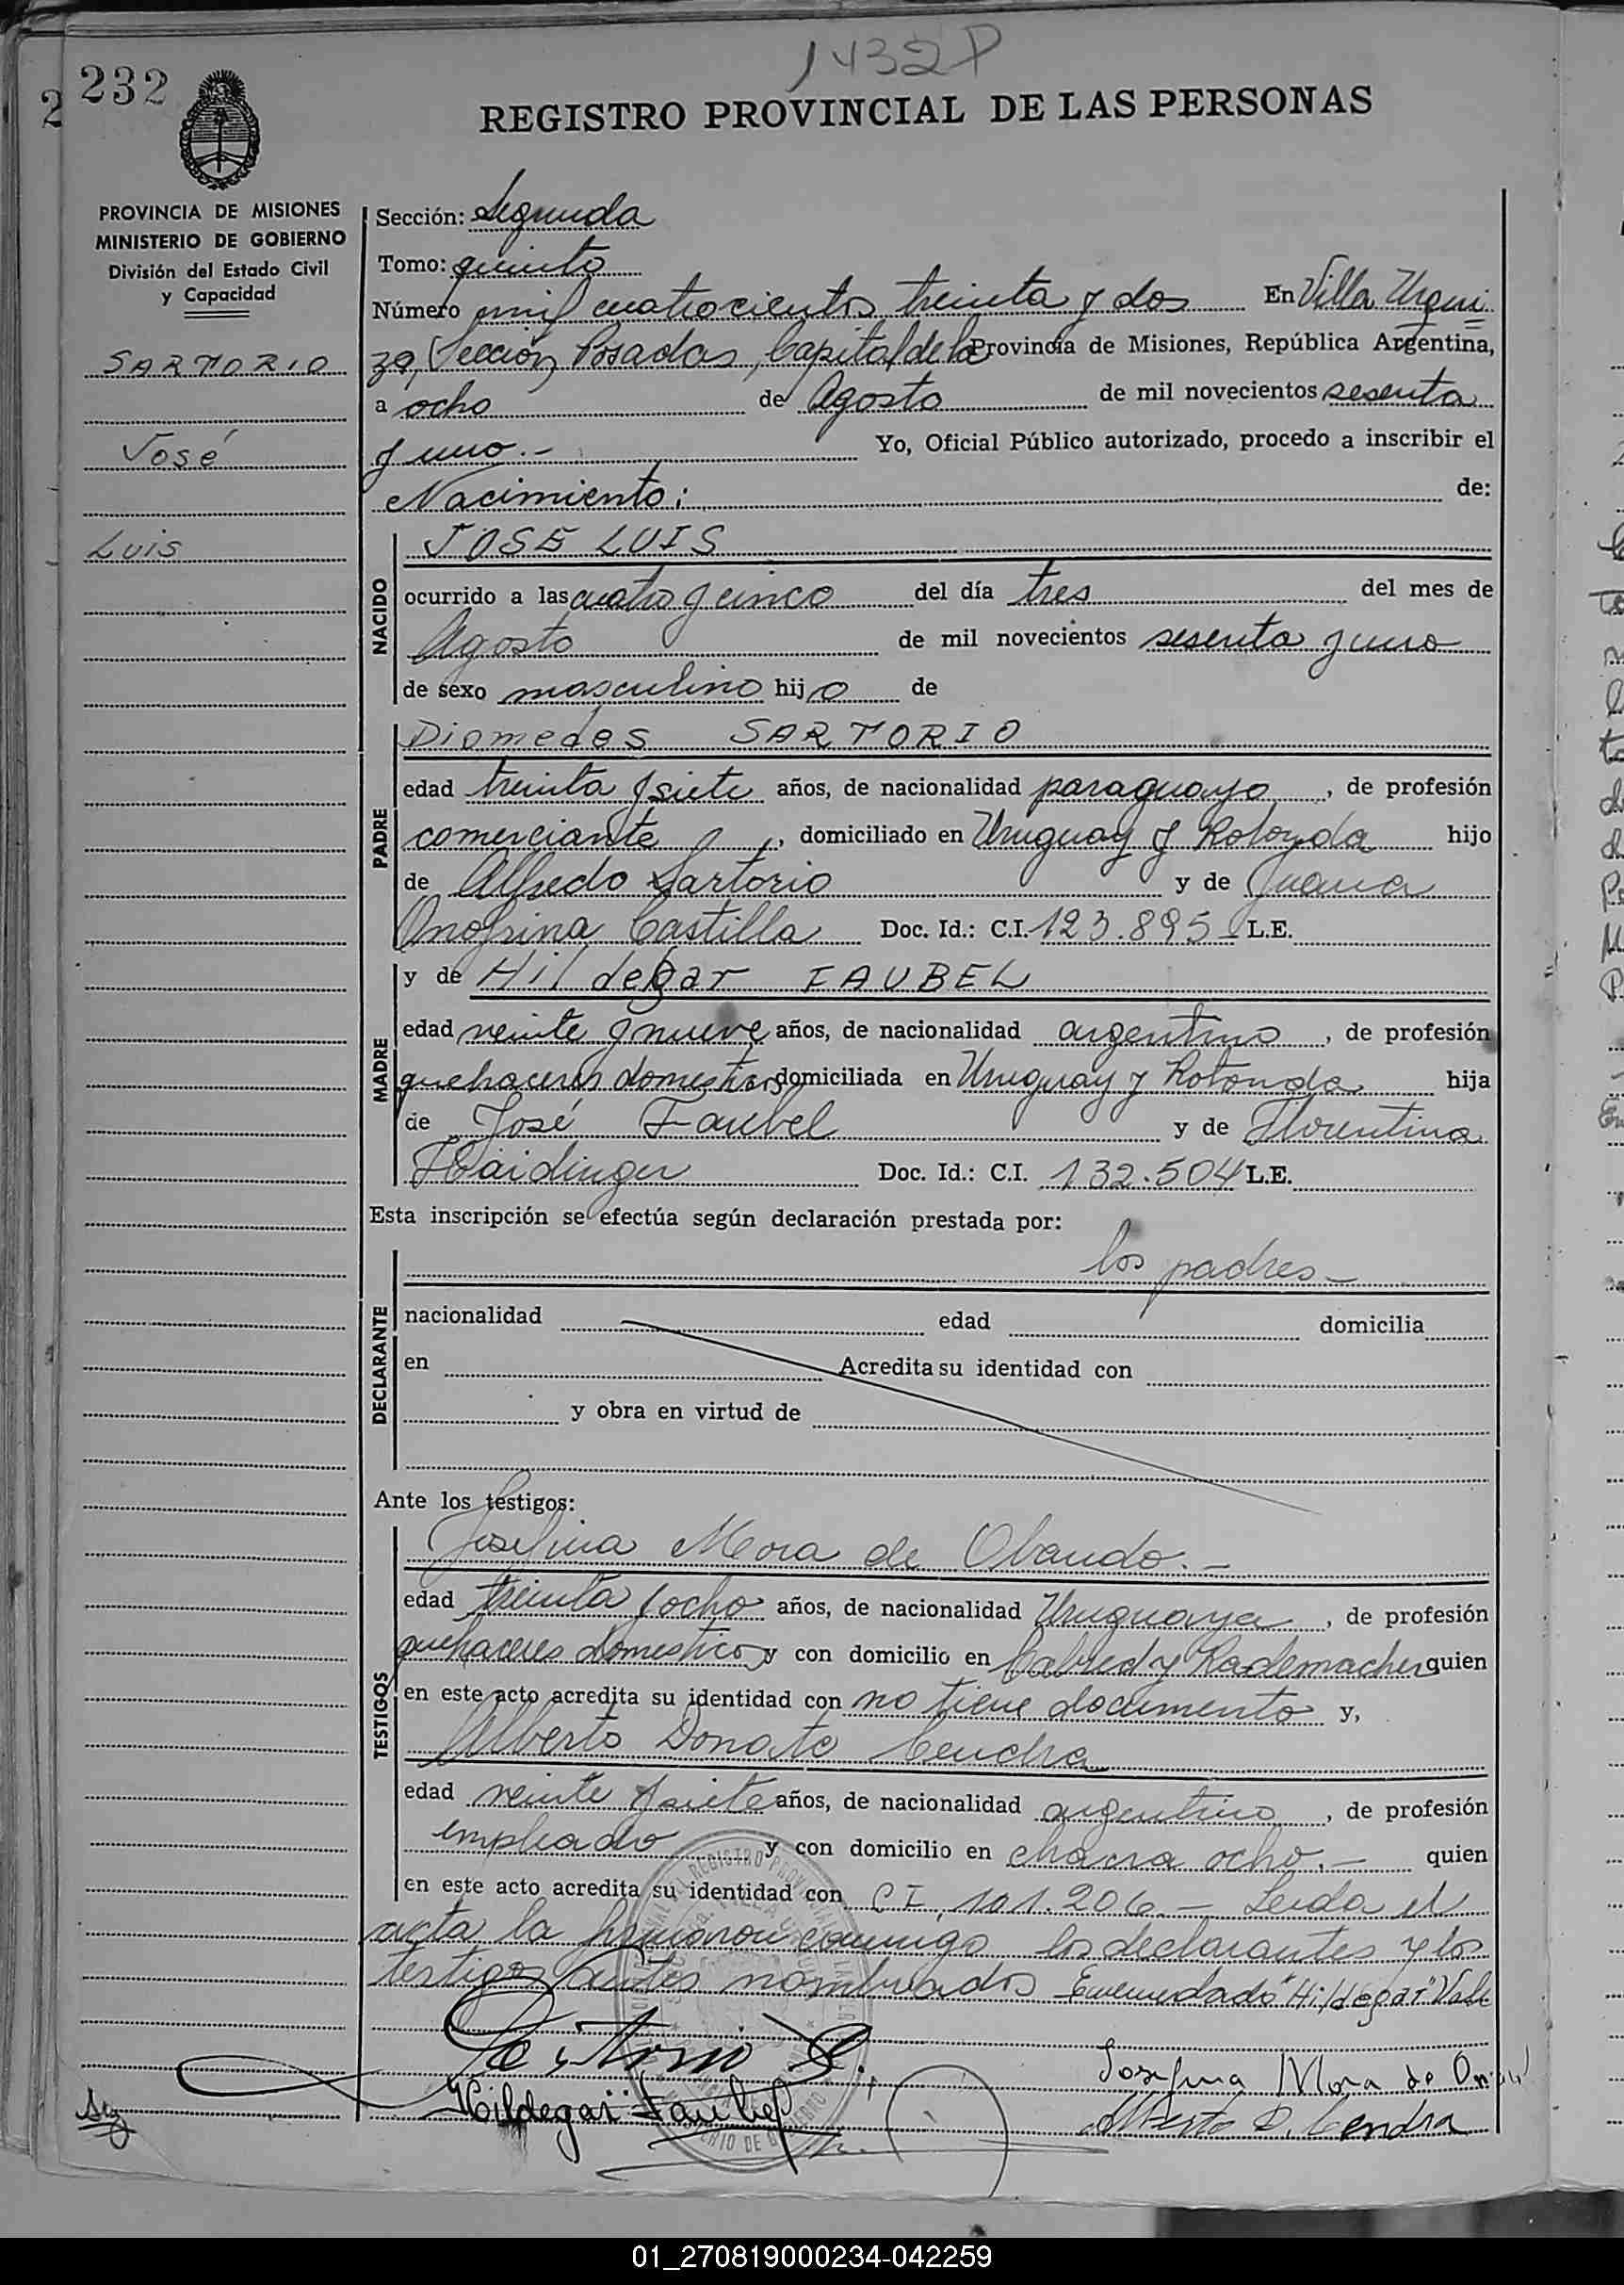 1432 P
232
2
REGISTRO PROVINCIAL DE LAS PERSONAS
PROVINCIA DE MISIONES
MINISTERIO DE GOBIERNO
División del Estado Civil
y Capacidad
SARTORIO
José
Luis
Sección: Segunda
Tomo: quinto
Número mil cuatrocientos treinta y dos En Villa Urqui
za, Sección Posadas, Capital de la Provincia de Misiones, República Argentina,
a ocho de Agosto de mil novecientos sesenta
y uno.- Yo, Oficial Público autorizado, procedo a inscribir el
Nacimiento: de:
NACIDO
JOSE LUIS
ocurrido a las cuatro y cinco del día tres del mes de
Agosto de mil novecientos sesenta y uno
de sexo masculino hijo de
PADRE
Diomedes SARTORIO
edad treinta y siete años, de nacionalidad paraguayo, de profesión
comerciante, domiciliado en Uruguay y Rotonda hijo
de Alfredo Sartorio y de Juana
Onofrina Castilla Doc. Id.: C.I. 123.895 L.E.
MADRE
y de Hildegar FAUBEL
edad veinte y nueve años, de nacionalidad argentino, de profesión
quehaceres domesticos domiciliada en Uruguay y Rotonda hija
de José Faubel y de Florentina
Haidinger Doc. Id.: C.I. 132.504 L.E.
Esta inscripción se efectúa según declaración prestada por:
DECLARANTE
los padres-
nacionalidad edad domicilia
en Acredita su identidad con
y obra en virtud de
Ante los testigos:
TESTIGOS
Josefina Mora de Obando.-
edad treinta y ocho años, de nacionalidad Uruguaya, de profesión
quehaceres domesticos y con domicilio en Cabred y Rademacher quien
en este acto acredita su identidad con no tiene documento y,
Alberto Donato Cendra
edad veinte y siete años, de nacionalidad argentino, de profesión
empleado y con domicilio en chacra ocho.- quien
en este acto acredita su identidad con CI. 101.206.- Leida el
acta la firmaron conmigo los declarantes y los
testigos antes nombrados Enmendado "Hildegar" Vale
Sartorio D.
Hildegar Faubel
Josefina Mora de
Alberto D. Cendra
01_270819000234-042259